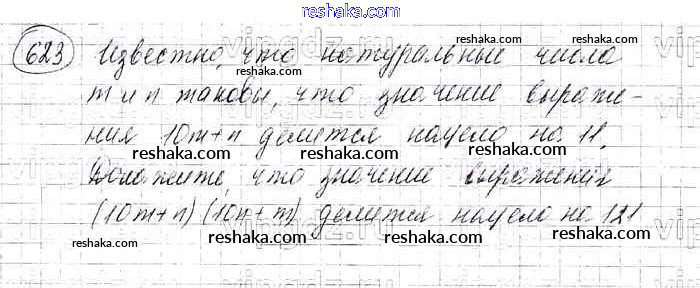 reshaka.com
623 Известно, что натуральные числа
reshaka.com
m и n таковы, что значение выраже-
reshaka.com reshaka.com
ния 10m+n делится нацело на 11.
reshaka.com reshaka.com
Докажите, что значение выражения
reshaka.com reshaka.com
(10m+n)(10n+m) делится нацело на 121
reshaka.com reshaka.com